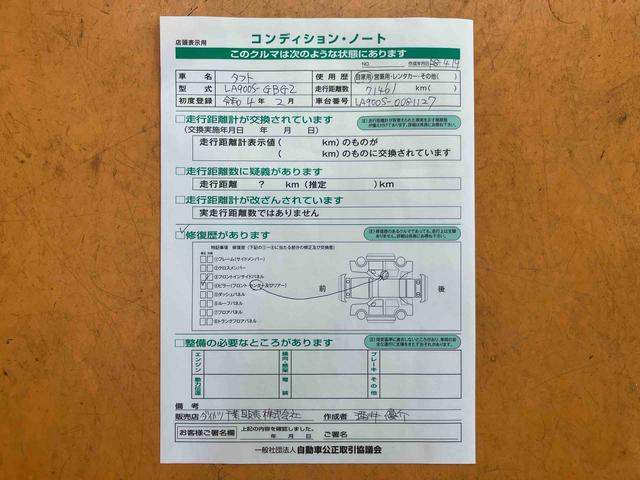 店頭表示用
コンディション・ノート
このクルマは次のような状態にあります
NO. 作成年月日
車名 タフト 使用歴 自家用・営業用・レンタカー・その他( )
型式 LA900S-GBGZ 走行距離数 71461 km( )
初度登録 令和4年2月 車台番号 LA900S-0081127
走行距離計が交換されています
(交換実施年月日 年 月 日)
走行距離計表示値( km)のものが
( km)のものに交換されています
走行距離数に疑義があります
走行距離 ? km(推定 )km
走行距離計が改ざんされています
実走行距離数ではありません
修復歴があります
特記事項 修復歴(下記の①~⑧に当たる部分の修正及び交換歴)
修正 交換
①フレーム(サイドメンバー)
②クロスメンバー
③フロントインサイドパネル
④ピラー(フロント・センター及びリアー)
⑤ダッシュパネル
⑥ルーフパネル
⑦フロアパネル
⑧トランクフロアパネル
前 後
整備の必要なところがあります
エンジン ブレーキ
電装 その他
備考
販売店 ダイハツ千葉販売株式会社 作成者 酒井
お客様ご署名欄 上記の内容を確認しました。
年 月 日 ご署名
一般社団法人 自動車公正取引協議会